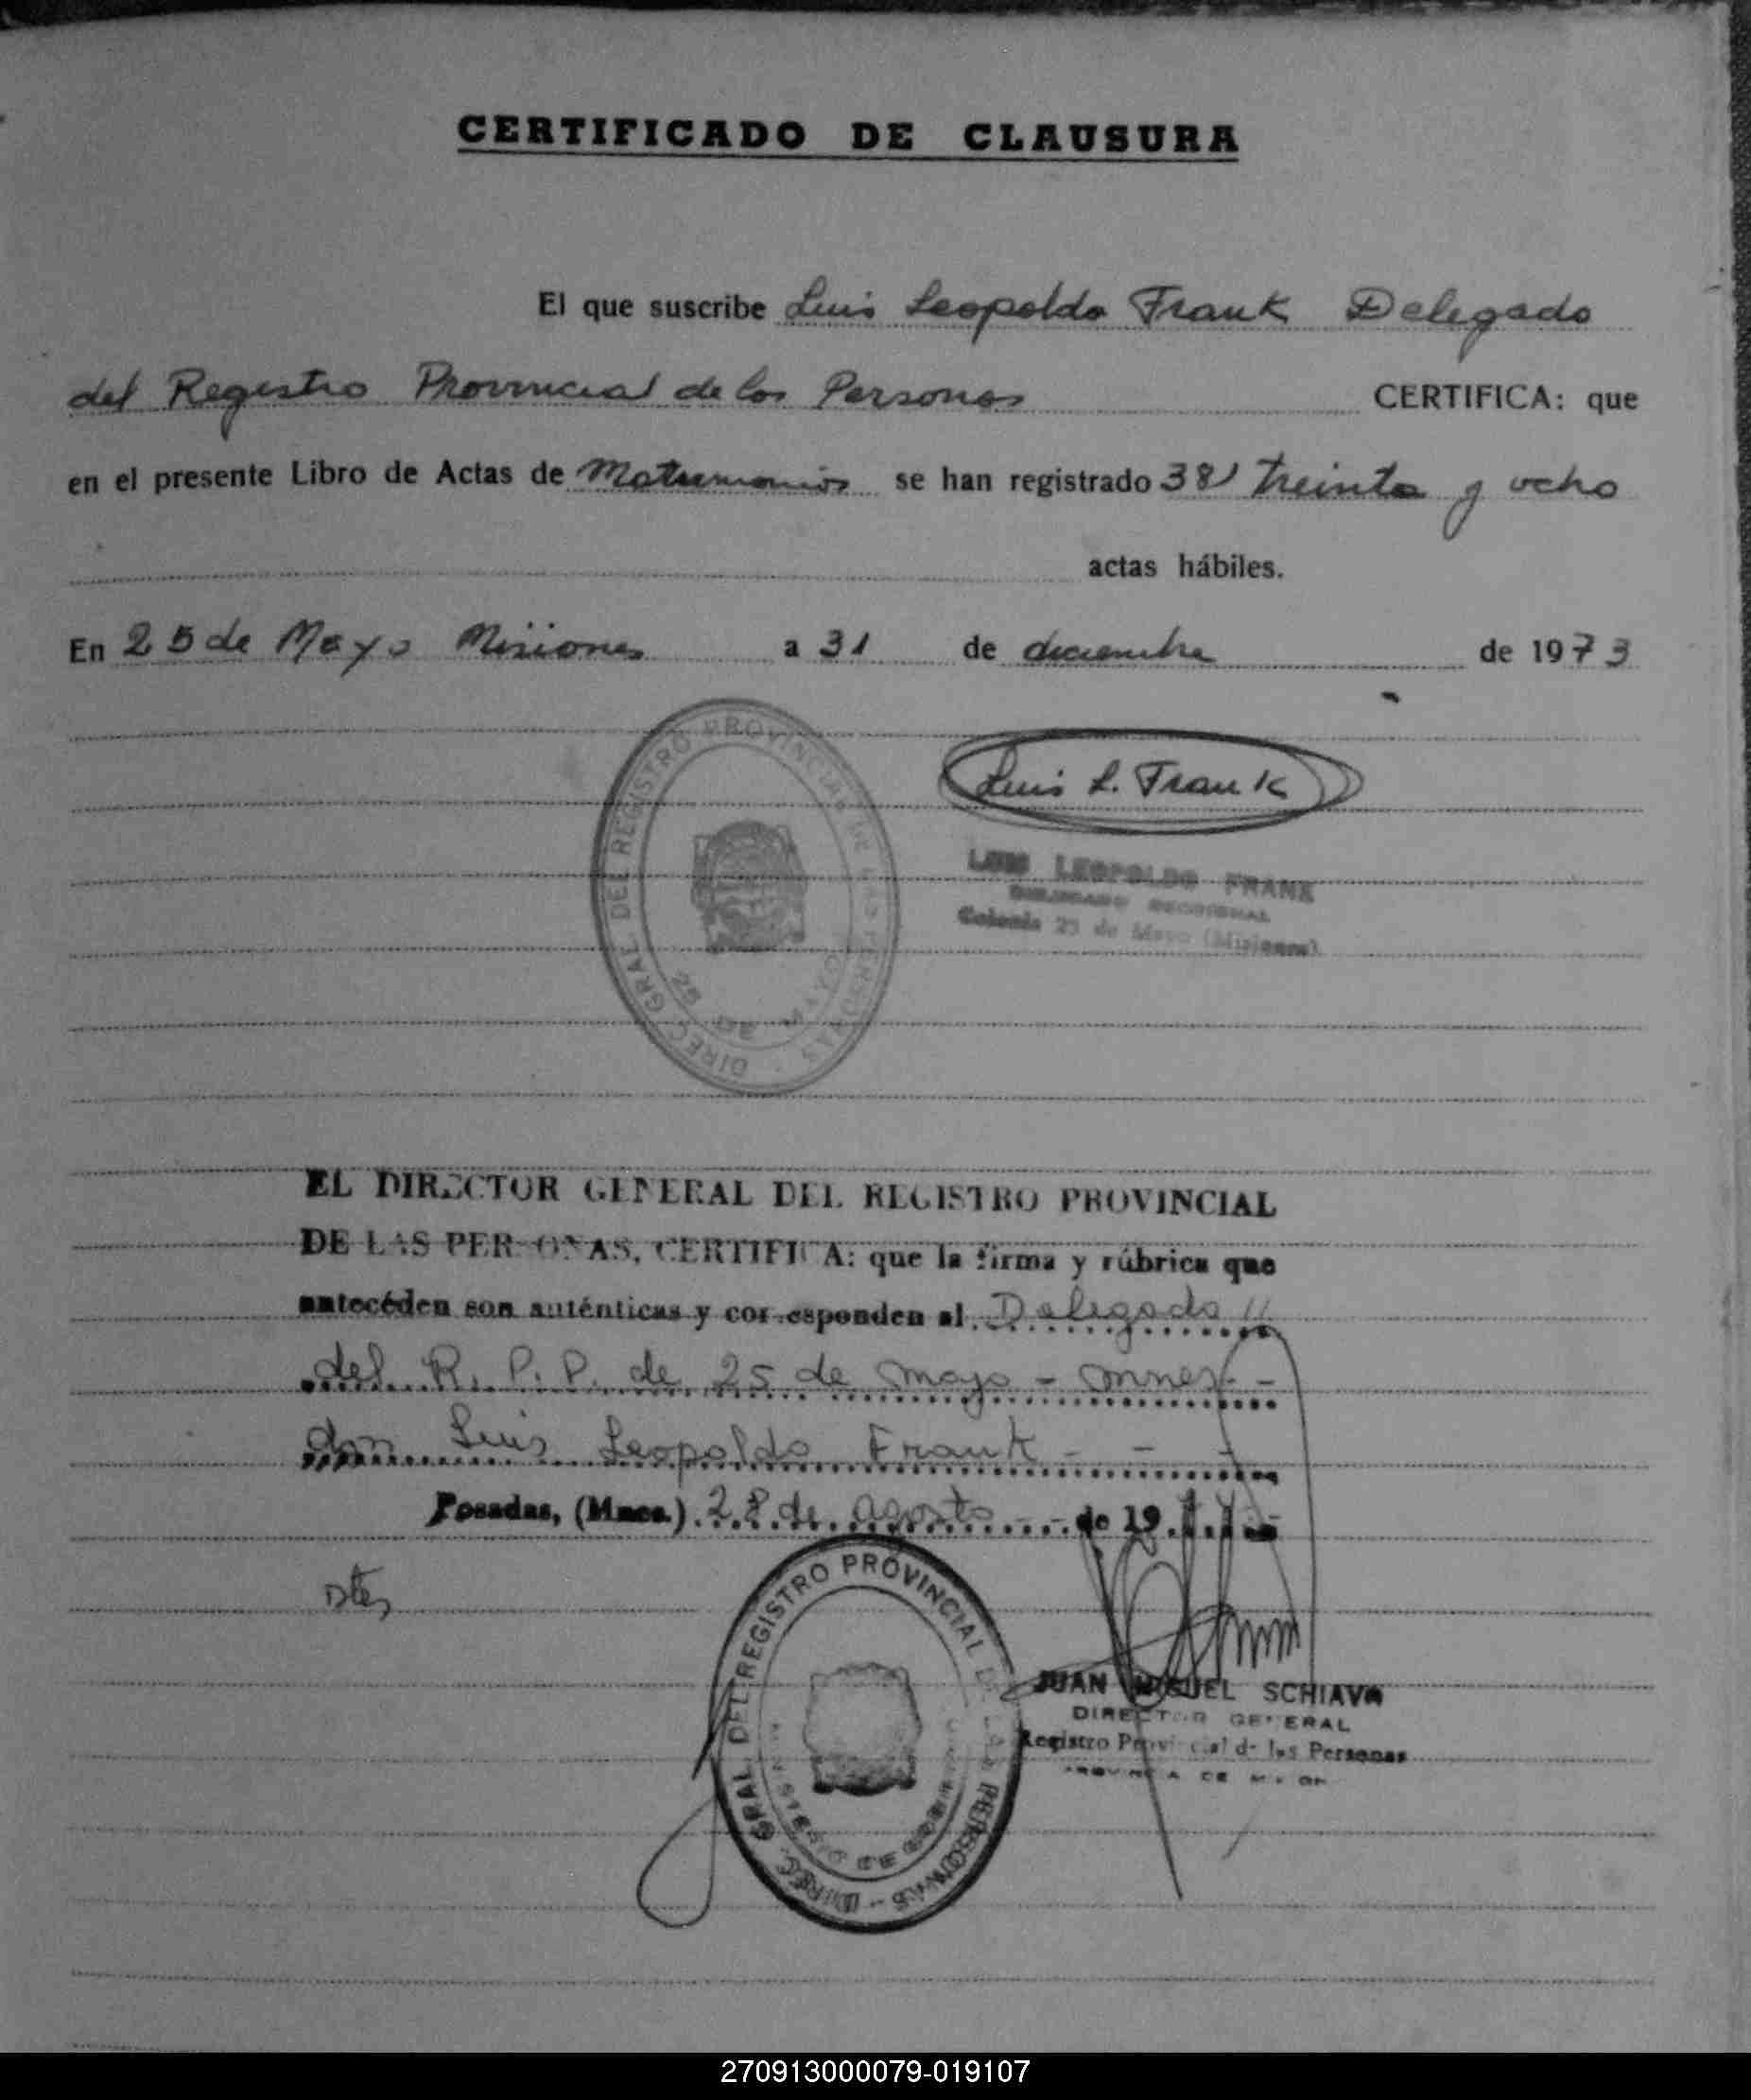 CERTIFICADO DE CLAUSURA
El que suscribe Luis Leopoldo Frank Delegado
del Registro Provincial de las Personas CERTIFICA: que
en el presente Libro de Actas de Matrimonios se han registrado 38/ treinta y ocho
actas hábiles.
En 25 de Mayo Misiones a 31 de diciembre de 1973
DIREC. GRAL. DEL REGISTRO PROVINCIAL DE LAS PERSONAS
25 DE MAYO
Luis L. Frank
LUIS LEOPOLDO FRANK
DELEGADO REGIONAL
Colonia 25 de Mayo (Misiones)
EL DIRECTOR GENERAL DEL REGISTRO PROVINCIAL
DE LAS PERSONAS, CERTIFICA: que la firma y rúbrica que
antecéden son auténticas y corresponden al Delegado //
del R. P. P. de 25 de mayo - mnes - -
don Luis Leopoldo Frank - - -
Posadas, (Mnes.) 28 de agosto - - de 19
DIREC. GRAL. DEL REGISTRO PROVINCIAL DE LAS PERSONAS
MINISTERIO DE GOBIERNO
JUAN MIGUEL SCHIAVO
DIRECTOR GENERAL
Registro Provincial de las Personas
PROVINCIA DE MISIONES
270913000079-019107